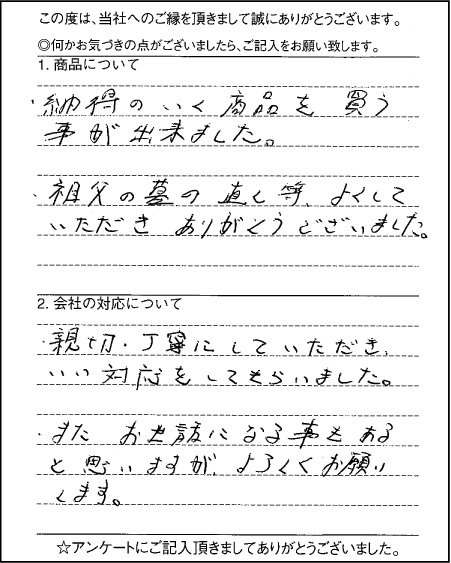 この度は、当社へのご縁を頂きまして誠にありがとうございます。
◎何かお気づきの点がございましたら、ご記入をお願い致します。
1. 商品について
・納得のいく商品を買う
事が出来ました。
・祖父の墓の直し等、よくして
いただきありがとうございました。
2. 会社の対応について
・親切・丁寧にしていただき、
いい対応をしてもらいました。
・またお世話になる事もある
と思いますが、よろしくお願い
します。
☆アンケートにご記入頂きましてありがとうございました。